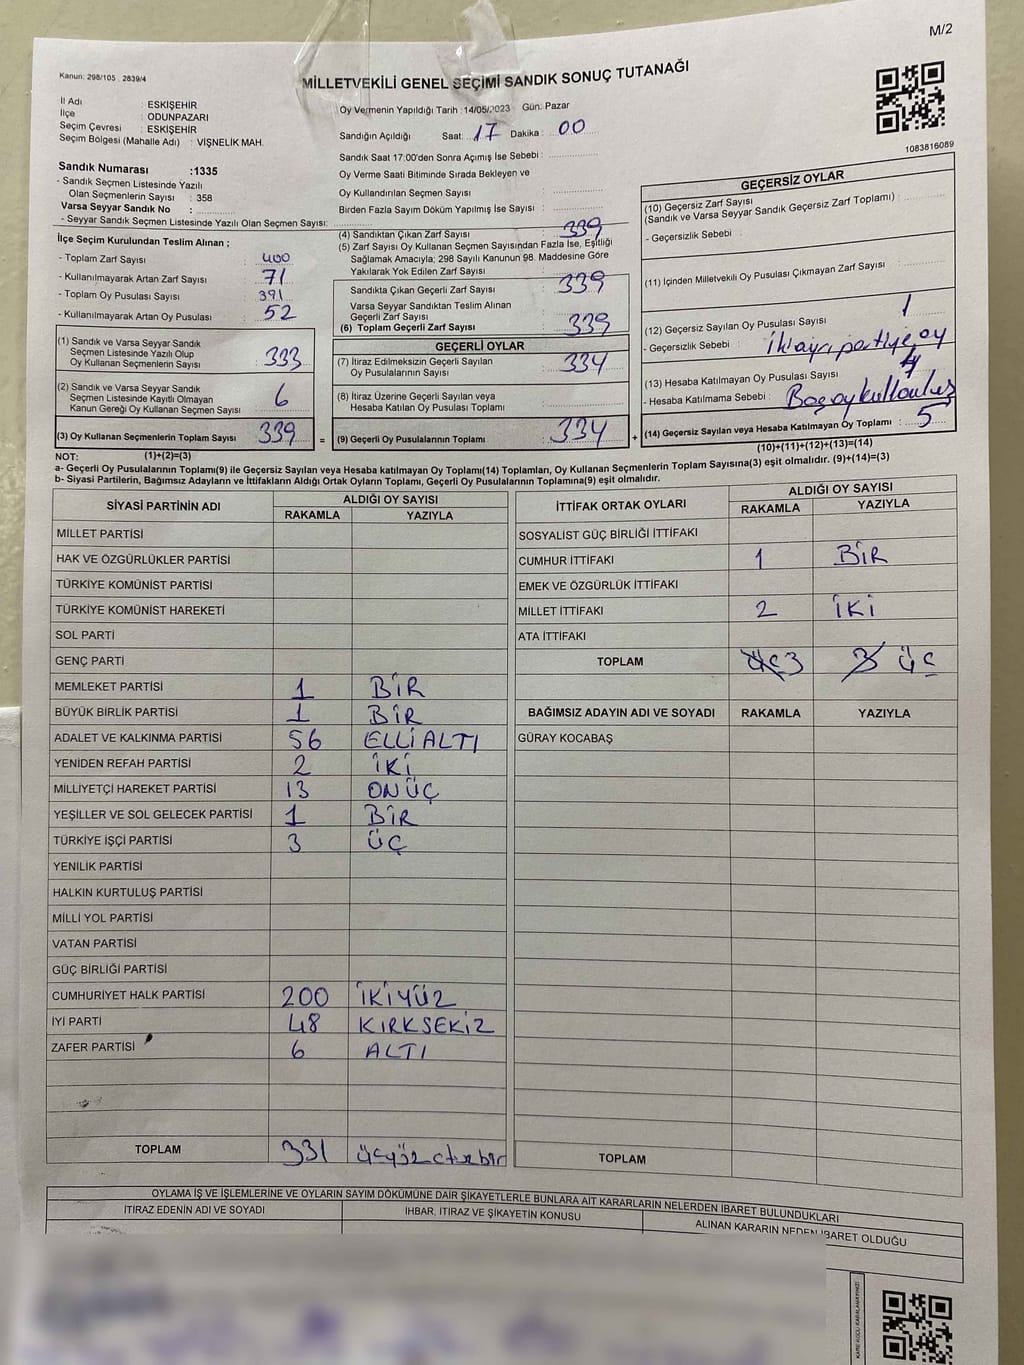 M/2
Kanun: 298/105 . 2839/4
MİLLETVEKİLİ GENEL SEÇİMİ SANDIK SONUÇ TUTANAĞI
İl Adı : ESKİŞEHİR
İlçe : ODUNPAZARI
Seçim Çevresi : ESKİŞEHİR
Seçim Bölgesi (Mahalle Adı) : VİŞNELİK MAH.
Oy Vermenin Yapıldığı Tarih : 14/05/2023 Gün: Pazar
Sandığın Açıldığı Saat: 17 Dakika : 00
Sandık Saat 17:00'den Sonra Açımış İse Sebebi :
Oy Verme Saati Bitiminde Sırada Bekleyen ve
Oy Kullandırılan Seçmen Sayısı :
Birden Fazla Sayım Döküm Yapılmış İse Sayısı :
1083816089
Sandık Numarası :1335
- Sandık Seçmen Listesinde Yazılı
Olan Seçmenlerin Sayısı : 358
Varsa Seyyar Sandık No :
- Seyyar Sandık Seçmen Listesinde Yazılı Olan Seçmen Sayısı:
İlçe Seçim Kurulundan Teslim Alınan ;
- Toplam Zarf Sayısı : 400
- Kullanılmayarak Artan Zarf Sayısı : 71
- Toplam Oy Pusulası Sayısı : 391
- Kullanılmayarak Artan Oy Pusulası : 52
(1) Sandık ve Varsa Seyyar Sandık
Seçmen Listesinde Yazılı Olup
Oy Kullanan Seçmenlerin Sayısı : 333
(2) Sandık ve Varsa Seyyar Sandık
Seçmen Listesinde Kayıtlı Olmayan
Kanun Gereği Oy Kullanan Seçmen Sayısı : 6
(3) Oy Kullanan Seçmenlerin Toplam Sayısı : 339 =
(1)+(2)=(3)
(4) Sandıktan Çıkan Zarf Sayısı : 339
(5) Zarf Sayısı Oy Kullanan Seçmen Sayısından Fazla İse, Eşitliği
Sağlamak Amacıyla; 298 Sayılı Kanunun 98. Maddesine Göre
Yakılarak Yok Edilen Zarf Sayısı :
Sandıkta Çıkan Geçerli Zarf Sayısı : 339
Varsa Seyyar Sandıktan Teslim Alınan
Geçerli Zarf Sayısı :
(6) Toplam Geçerli Zarf Sayısı : 339
GEÇERLİ OYLAR
(7) İtiraz Edilmeksizin Geçerli Sayılan
Oy Pusulalarının Sayısı : 334
(8) İtiraz Üzerine Geçerli Sayılan veya
Hesaba Katılan Oy Pusulası Toplamı :
(9) Geçerli Oy Pusulalarının Toplamı : 334 +
GEÇERSİZ OYLAR
(10) Geçersiz Zarf Sayısı
(Sandık ve Varsa Seyyar Sandık Geçersiz Zarf Toplamı) :
- Geçersizlik Sebebi :
(11) İçinden Milletvekili Oy Pusulası Çıkmayan Zarf Sayısı :
(12) Geçersiz Sayılan Oy Pusulası Sayısı : 1
- Geçersizlik Sebebi : iki ayrı partiye oy
(13) Hesaba Katılmayan Oy Pusulası Sayısı : 4
- Hesaba Katılmama Sebebi : Boş oy
(14) Geçersiz Sayılan veya Hesaba Katılmayan Oy Toplamı : 5
(10)+(11)+(12)+(13)=(14)
NOT:
a- Geçerli Oy Pusulalarının Toplamı(9) ile Geçersiz Sayılan veya Hesaba katılmayan Oy Toplamı(14) Toplamları, Oy Kullanan Seçmenlerin Toplam Sayısına(3) eşit olmalıdır. (9)+(14)=(3)
b- Siyasi Partilerin, Bağımsız Adayların ve İttifakların Aldığı Ortak Oyların Toplamı, Geçerli Oy Pusulalarının Toplamına(9) eşit olmalıdır.
SİYASİ PARTİNİN ADI ALDIĞI OY SAYISI
RAKAMLA YAZIYLA
MİLLET PARTİSİ
HAK VE ÖZGÜRLÜKLER PARTİSİ
TÜRKİYE KOMÜNİST PARTİSİ
TÜRKİYE KOMÜNİST HAREKETİ
SOL PARTİ
GENÇ PARTİ
MEMLEKET PARTİSİ 1 BİR
BÜYÜK BİRLİK PARTİSİ 1 BİR
ADALET VE KALKINMA PARTİSİ 56 ELLİ ALTI
YENİDEN REFAH PARTİSİ 2 İKİ
MİLLİYETÇİ HAREKET PARTİSİ 13 ONÜÇ
YEŞİLLER VE SOL GELECEK PARTİSİ 1 BİR
TÜRKİYE İŞÇİ PARTİSİ 3 ÜÇ
YENİLİK PARTİSİ
HALKIN KURTULUŞ PARTİSİ
MİLLİ YOL PARTİSİ
VATAN PARTİSİ
GÜÇ BİRLİĞİ PARTİSİ
CUMHURİYET HALK PARTİSİ 200 İKİYÜZ
İYİ PARTİ 48 KIRKSEKİZ
ZAFER PARTİSİ 6 ALTI
TOPLAM 331 üçyüz otuzbir
İTTİFAK ORTAK OYLARI ALDIĞI OY SAYISI
RAKAMLA YAZIYLA
SOSYALİST GÜÇ BİRLİĞİ İTTİFAKI
CUMHUR İTTİFAKI 1 BİR
EMEK VE ÖZGÜRLÜK İTTİFAKI
MİLLET İTTİFAKI 2 İKİ
ATA İTTİFAKI
TOPLAM üç 3 3 üç
BAĞIMSIZ ADAYIN ADI VE SOYADI RAKAMLA YAZIYLA
GÜRAY KOCABAŞ
TOPLAM
OYLAMA İŞ VE İŞLEMLERİNE VE OYLARIN SAYIM DÖKÜMÜNE DAİR ŞİKAYETLERLE BUNLARA AİT KARARLARIN NELERDEN İBARET BULUNDUKLARI
İTİRAZ EDENİN ADI VE SOYADI İHBAR, İTİRAZ VE ŞİKAYETİN KONUSU ALINAN KARARIN NEDEN İBARET OLDUĞU